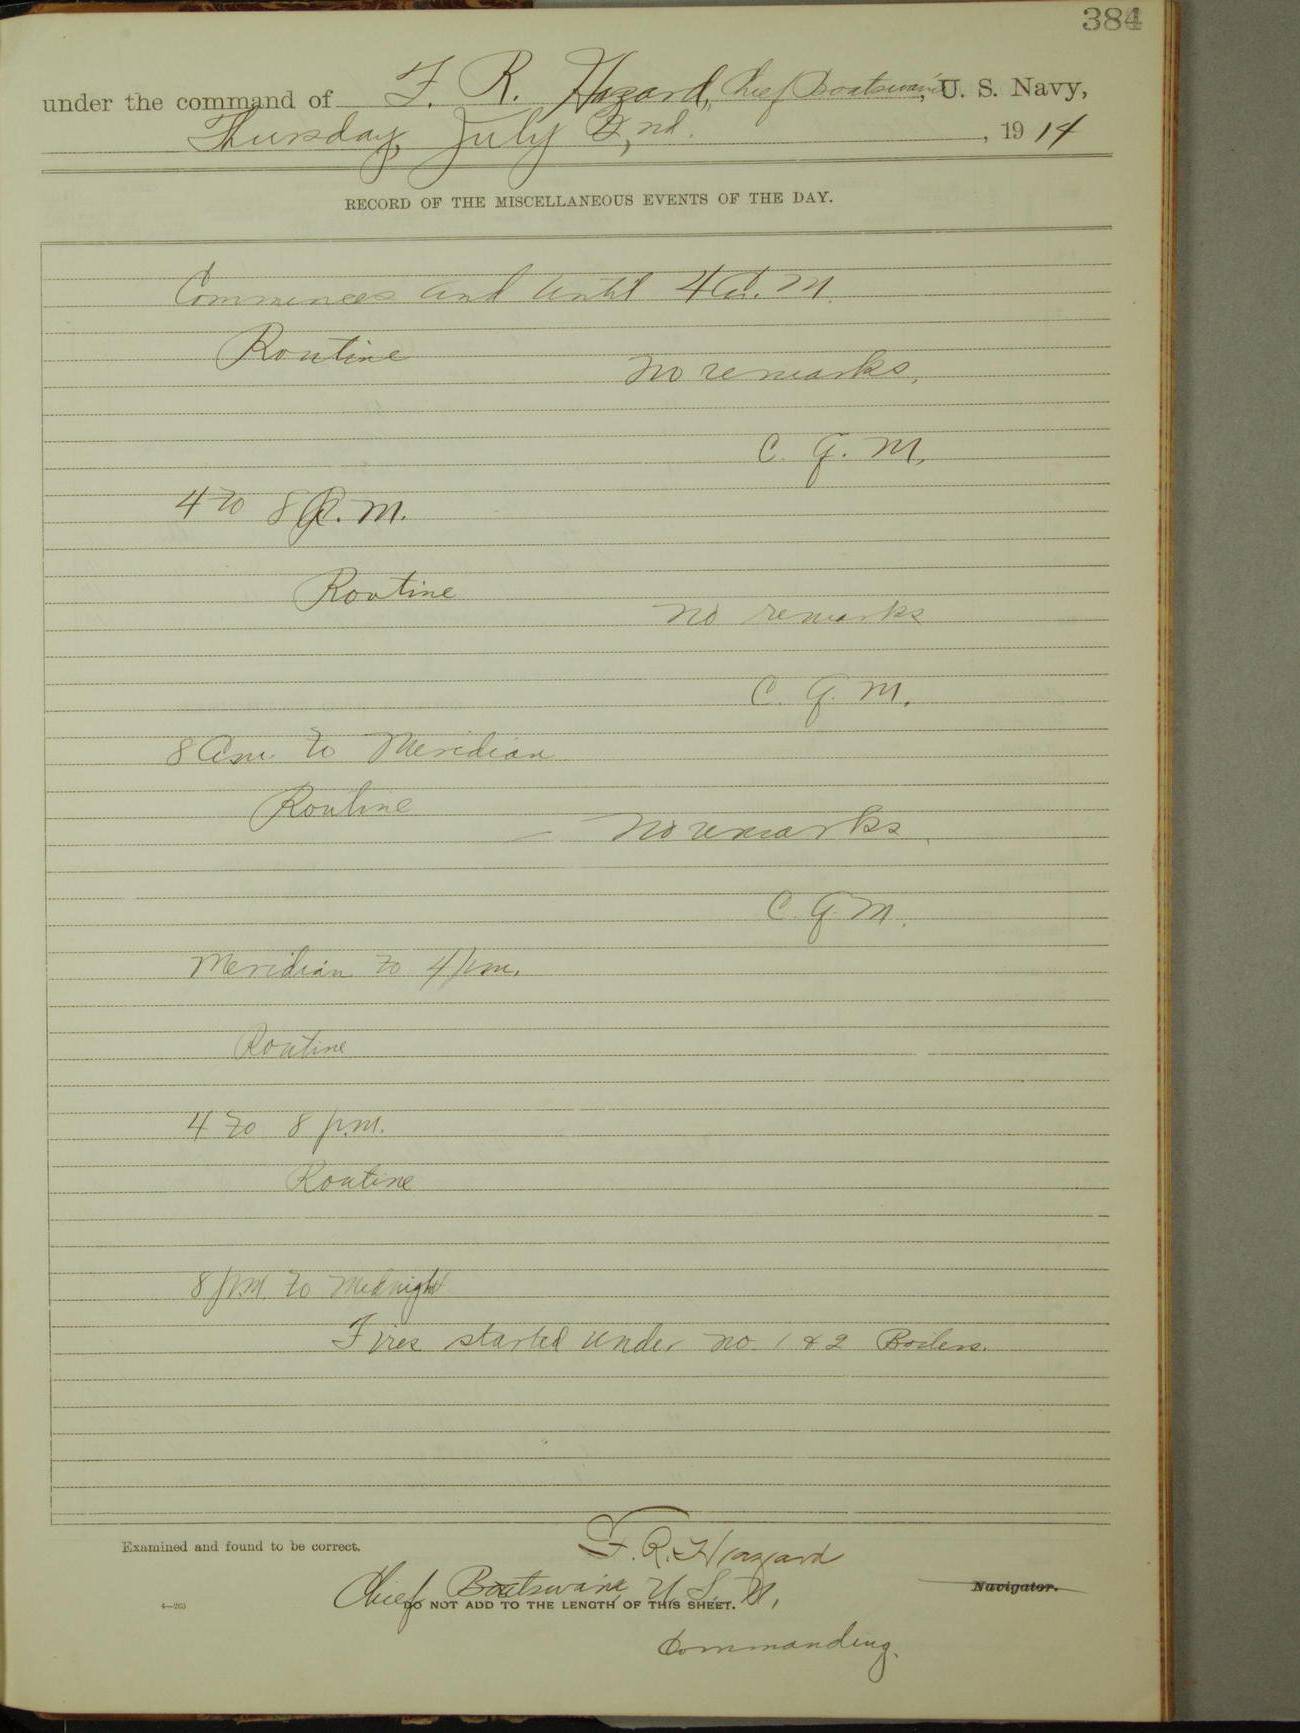 384
under the command of F. R. Hazard, Chief Boatswain, U. S. Navy,
Thursday, July 2, nd. , 1914
RECORD OF THE MISCELLANEOUS EVENTS OF THE DAY.
Commences and until 4 a. M.
Routine
No remarks.
C. G. M.
4 to 8 a. M.
Routine
No remarks
C. G. M.
8 am. to Meridian
Routine
— No remarks.
C. G. M.
Meridian to 4 pm.
Routine
4 to 8 p.m.
Routine
8 p.m. to Midnight
Fires started under no. 1 & 2 Boilers.
Examined and found to be correct.
F. R. Hazard
Chief Boatswain, U. S. N.,
Navigator.
4—263
DO NOT ADD TO THE LENGTH OF THIS SHEET.
Commanding.